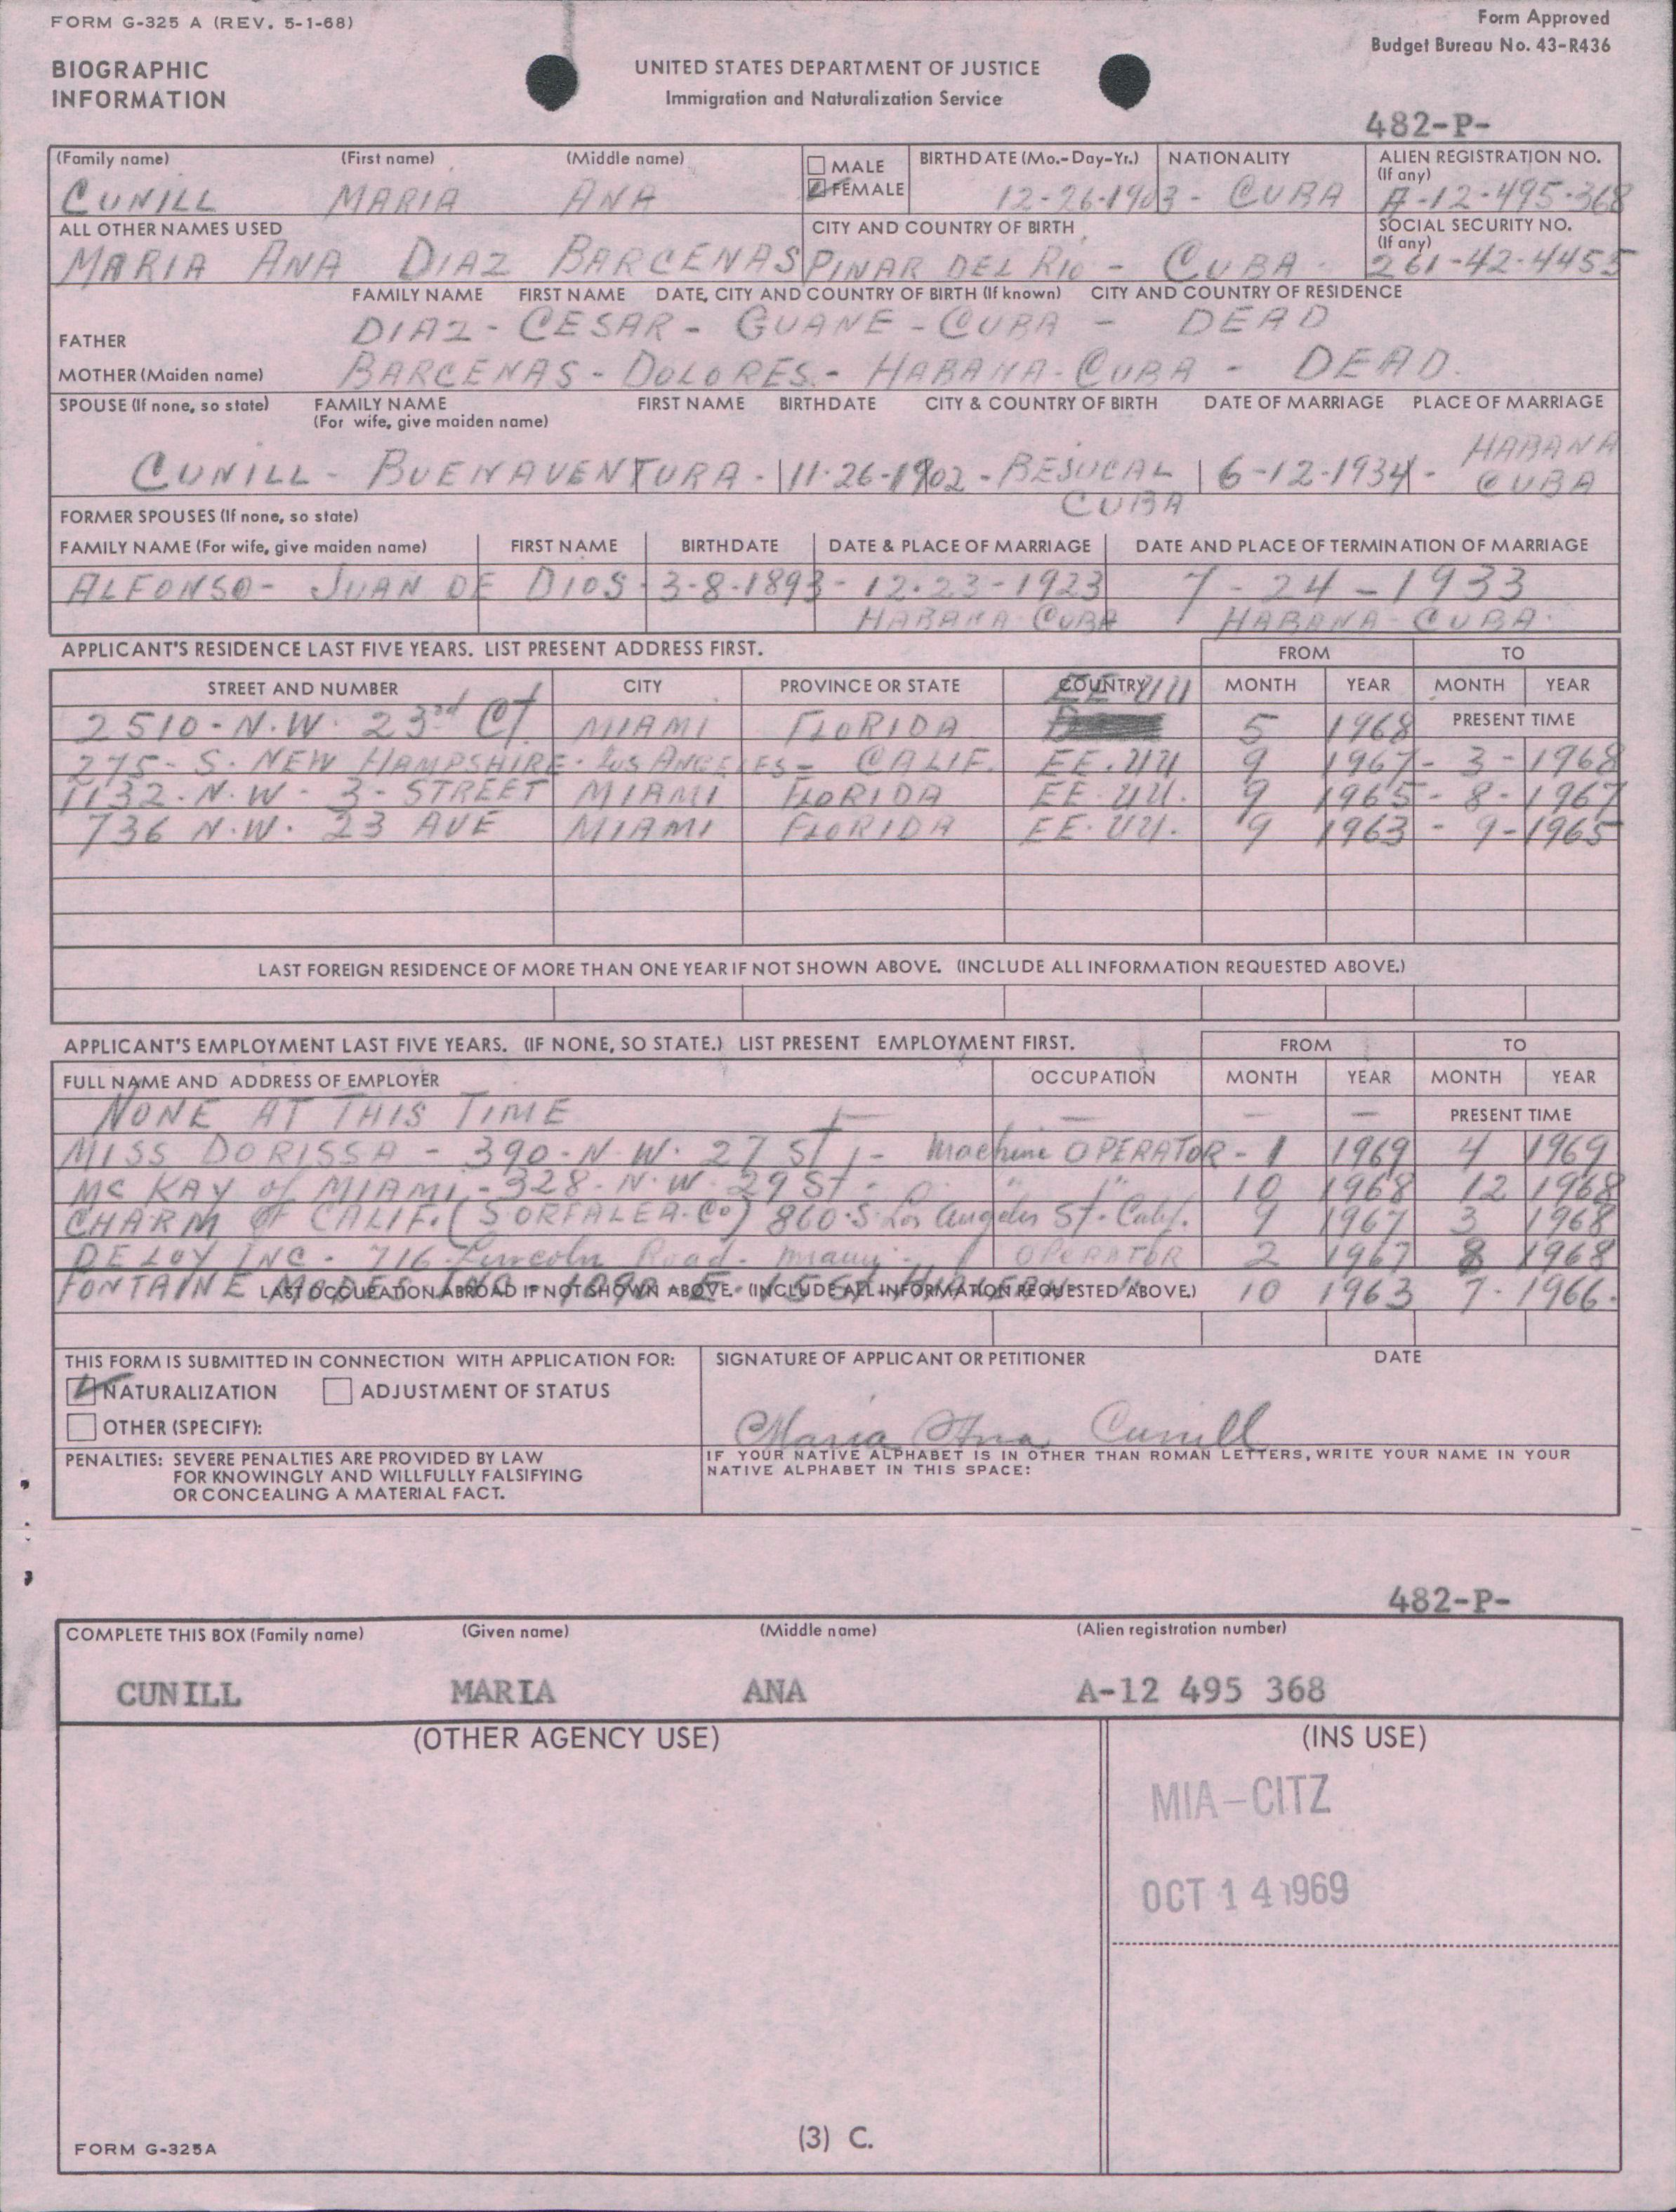 FORM G-325 A (REV. 5-1-68)
Form Approved
Budget Bureau No. 43-R436
BIOGRAPHIC
INFORMATION
UNITED STATES DEPARTMENT OF JUSTICE
Immigration and Naturalization Service
482-P-
(Family name) (First name) (Middle name) MALE FEMALE BIRTHDATE (Mo.-Day-Yr.) NATIONALITY ALIEN REGISTRATION NO. (If any)
CUNILL MARIA ANA 12-26-1903 - CUBA A-12-495-368
ALL OTHER NAMES USED CITY AND COUNTRY OF BIRTH SOCIAL SECURITY NO. (If any)
MARIA ANA DIAZ BARCENAS PINAR DEL RIO - CUBA 261-42-4455
FAMILY NAME FIRST NAME DATE, CITY AND COUNTRY OF BIRTH (If known) CITY AND COUNTRY OF RESIDENCE
FATHER DIAZ - CESAR - GUANE - CUBA - DEAD
MOTHER (Maiden name) BARCENAS - DOLORES - HABANA - CUBA - DEAD.
SPOUSE (If none, so state) FAMILY NAME (For wife, give maiden name) FIRST NAME BIRTHDATE CITY & COUNTRY OF BIRTH DATE OF MARRIAGE PLACE OF MARRIAGE
CUNILL - BUENAVENTURA - 11-26-1902 - BESUCAL CUBA 6-12-1934 - HABANA CUBA
FORMER SPOUSES (If none, so state)
FAMILY NAME (For wife, give maiden name) FIRST NAME BIRTHDATE DATE & PLACE OF MARRIAGE DATE AND PLACE OF TERMINATION OF MARRIAGE
ALFONSO - JUAN DE DIOS - 3-8-1893 - 12-23-1923 7-24-1933
HABANA CUBA HABANA CUBA
APPLICANT'S RESIDENCE LAST FIVE YEARS. LIST PRESENT ADDRESS FIRST. FROM TO
STREET AND NUMBER CITY PROVINCE OR STATE COUNTRY MONTH YEAR MONTH YEAR
2510 - N.W. 23rd Ct MIAMI FLORIDA EE UU 5 1968 PRESENT TIME
275 - S. NEW HAMPSHIRE - LOS ANGELES - CALIF. EE.UU 9 1967 - 3 - 1968
1132 - N.W - 3 - STREET MIAMI FLORIDA EE.UU. 9 1965 - 8 - 1967
736 N.W. 23 AVE MIAMI FLORIDA EE.UU. 9 1963 - 9 - 1965
LAST FOREIGN RESIDENCE OF MORE THAN ONE YEAR IF NOT SHOWN ABOVE. (INCLUDE ALL INFORMATION REQUESTED ABOVE.)
APPLICANT'S EMPLOYMENT LAST FIVE YEARS. (IF NONE, SO STATE.) LIST PRESENT EMPLOYMENT FIRST. FROM TO
FULL NAME AND ADDRESS OF EMPLOYER OCCUPATION MONTH YEAR MONTH YEAR
NONE AT THIS TIME - - - - PRESENT TIME
MISS DORISSA - 390 - N.W. 27 St - Machine OPERATOR - 1 1969 4 1969
MC KAY of MIAMI - 328 - N.W. 29 St - " " 10 1968 12 1968
CHARM OF CALIF. (SORFALEA Co) 860 S. Los Angeles St. Calif. 9 1967 3 1968
DELOY INC - 716 Lincoln Road - Miami - OPERATOR 2 1967 8 1968
FONTAINE MODES INC 10 1963 7 - 1966.
LAST OCCUPATION ABROAD IF NOT SHOWN ABOVE. (INCLUDE ALL INFORMATION REQUESTED ABOVE.)
THIS FORM IS SUBMITTED IN CONNECTION WITH APPLICATION FOR: SIGNATURE OF APPLICANT OR PETITIONER DATE
NATURALIZATION ADJUSTMENT OF STATUS
OTHER (SPECIFY): Maria Ana Cunill
PENALTIES: SEVERE PENALTIES ARE PROVIDED BY LAW
FOR KNOWINGLY AND WILLFULLY FALSIFYING
OR CONCEALING A MATERIAL FACT.
IF YOUR NATIVE ALPHABET IS IN OTHER THAN ROMAN LETTERS, WRITE YOUR NAME IN YOUR
NATIVE ALPHABET IN THIS SPACE:
482-P-
COMPLETE THIS BOX (Family name) (Given name) (Middle name) (Alien registration number)
CUNILL MARIA ANA A-12 495 368
(OTHER AGENCY USE) (INS USE)
MIA-CITZ
OCT 14 1969
FORM G-325A
(3) C.